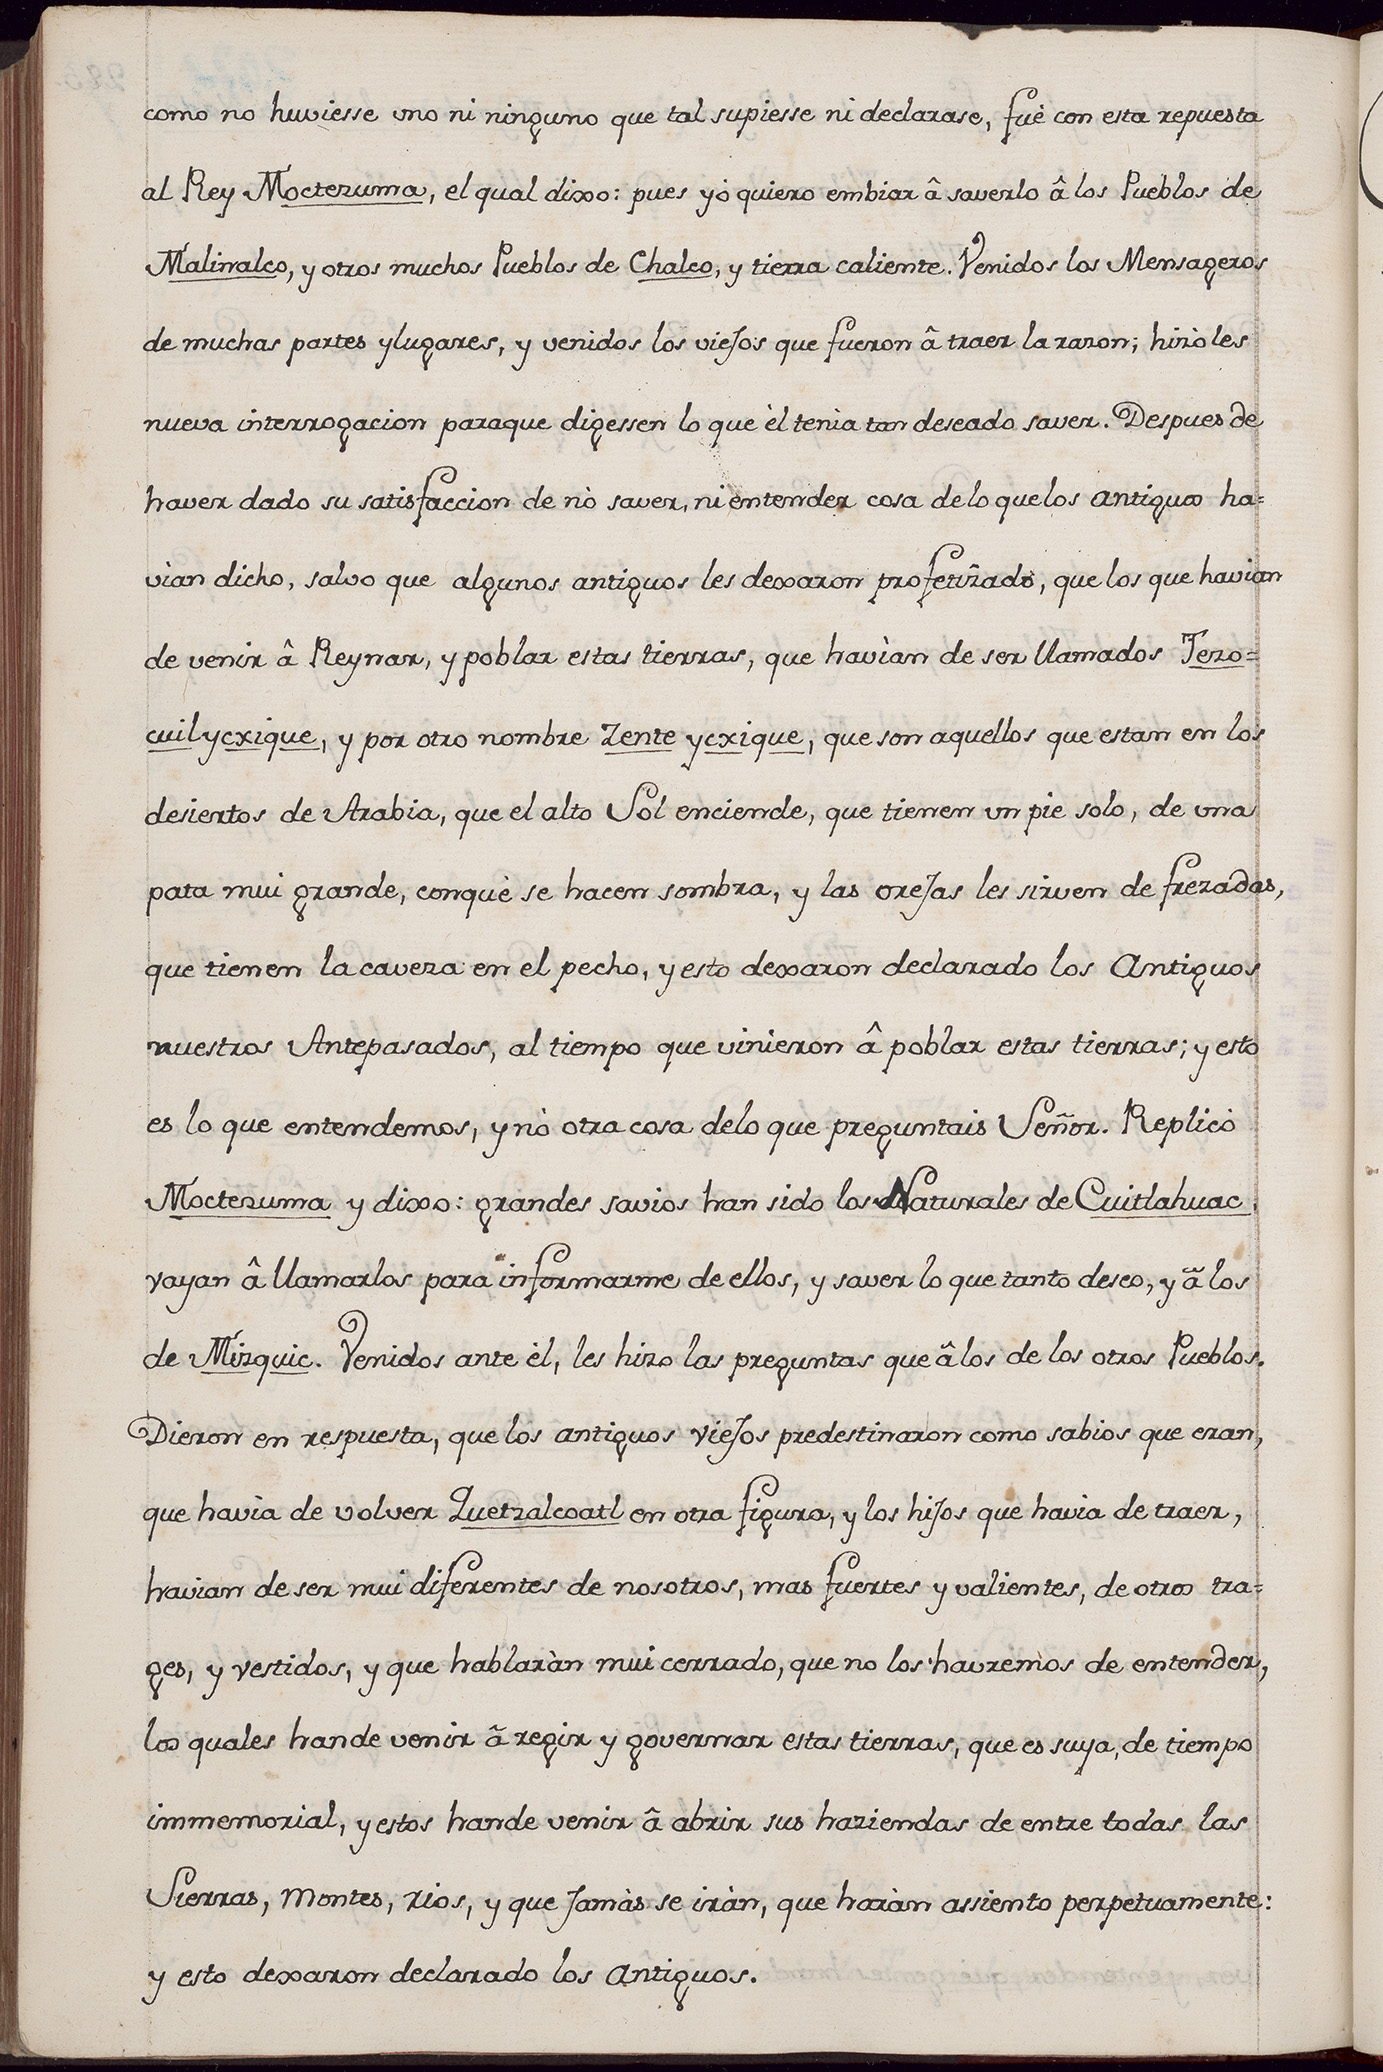 como no huviesse uno ni ninguno que tal supiesse ni declarase, fuè con esta repuesta
al Rey Moctezuma, el qual dixo: pues yò quiero embiar â saverlo â los Pueblos de
Malinalco, y otros muchos Pueblos de Chalco, y tierra caliente. Venidos los Mensageros
de muchas partes y lugares, y venidos los viejos que fueron â traer la razon; hizòles
nueva interrogacion paraque digessen lo que èl tenìa tan deseado saver. Despues de
haver dado su satisfaccion de nò saver, ni entender cosa de lo que los antiguos ha=
vìan dicho, salvo que algunos antiguos les dexaron profetizado, que los que havian
de venir â Reynar, y poblar estas tierras, que havìan de ser llamados Tezo=
cuilycxique, y por otro nombre Zente ycxique, que son aquellos que estan en los
desiertos de Arabia, que el alto Sol enciende, que tienen un pie solo, de una
pata mui grande, conquè se hacen sombra, y las orejas les sirven de frezadas,
que tienen la caveza en el pecho, y esto dexaron declarado los Antiguos
nuestros Antepasados, al tiempo que vinieron â poblar estas tierras; y esto
es lo que entendemos, y nò otra cosa de lo que preguntais Señor. Replicò
Moctezuma y dixo: grandes savios han sido los Naturales de Cuitlahuac,
vayan â llamarlos para informarme de ellos, y saver lo que tanto deseo, y ã los
de Mizquic. Venidos ante èl, les hizo las preguntas que â los de los otros Pueblos.
Dieron en respuesta, que los antiguos viejos predestinaron como sabios que eran,
que havìa de volver Quetzalcoatl en otra figura, y los hijos que havia de traer,
havian de ser mui diferentes de nosotros, mas fuertes y valientes, de otros tra=
ges, y vestidos, y que hablaràn mui cerrado, que no los havremos de entender,
los quales hande venir ã regir y governar estas tierras, que es suya, de tiempo
immemorial, y estos hande venir ã abrir sus haziendas de entre todas las
Sierras, montes, rios, y que jamàs se iràn, que haràn assiento perpetuamente:
y esto dexaron declarado los antiguos.